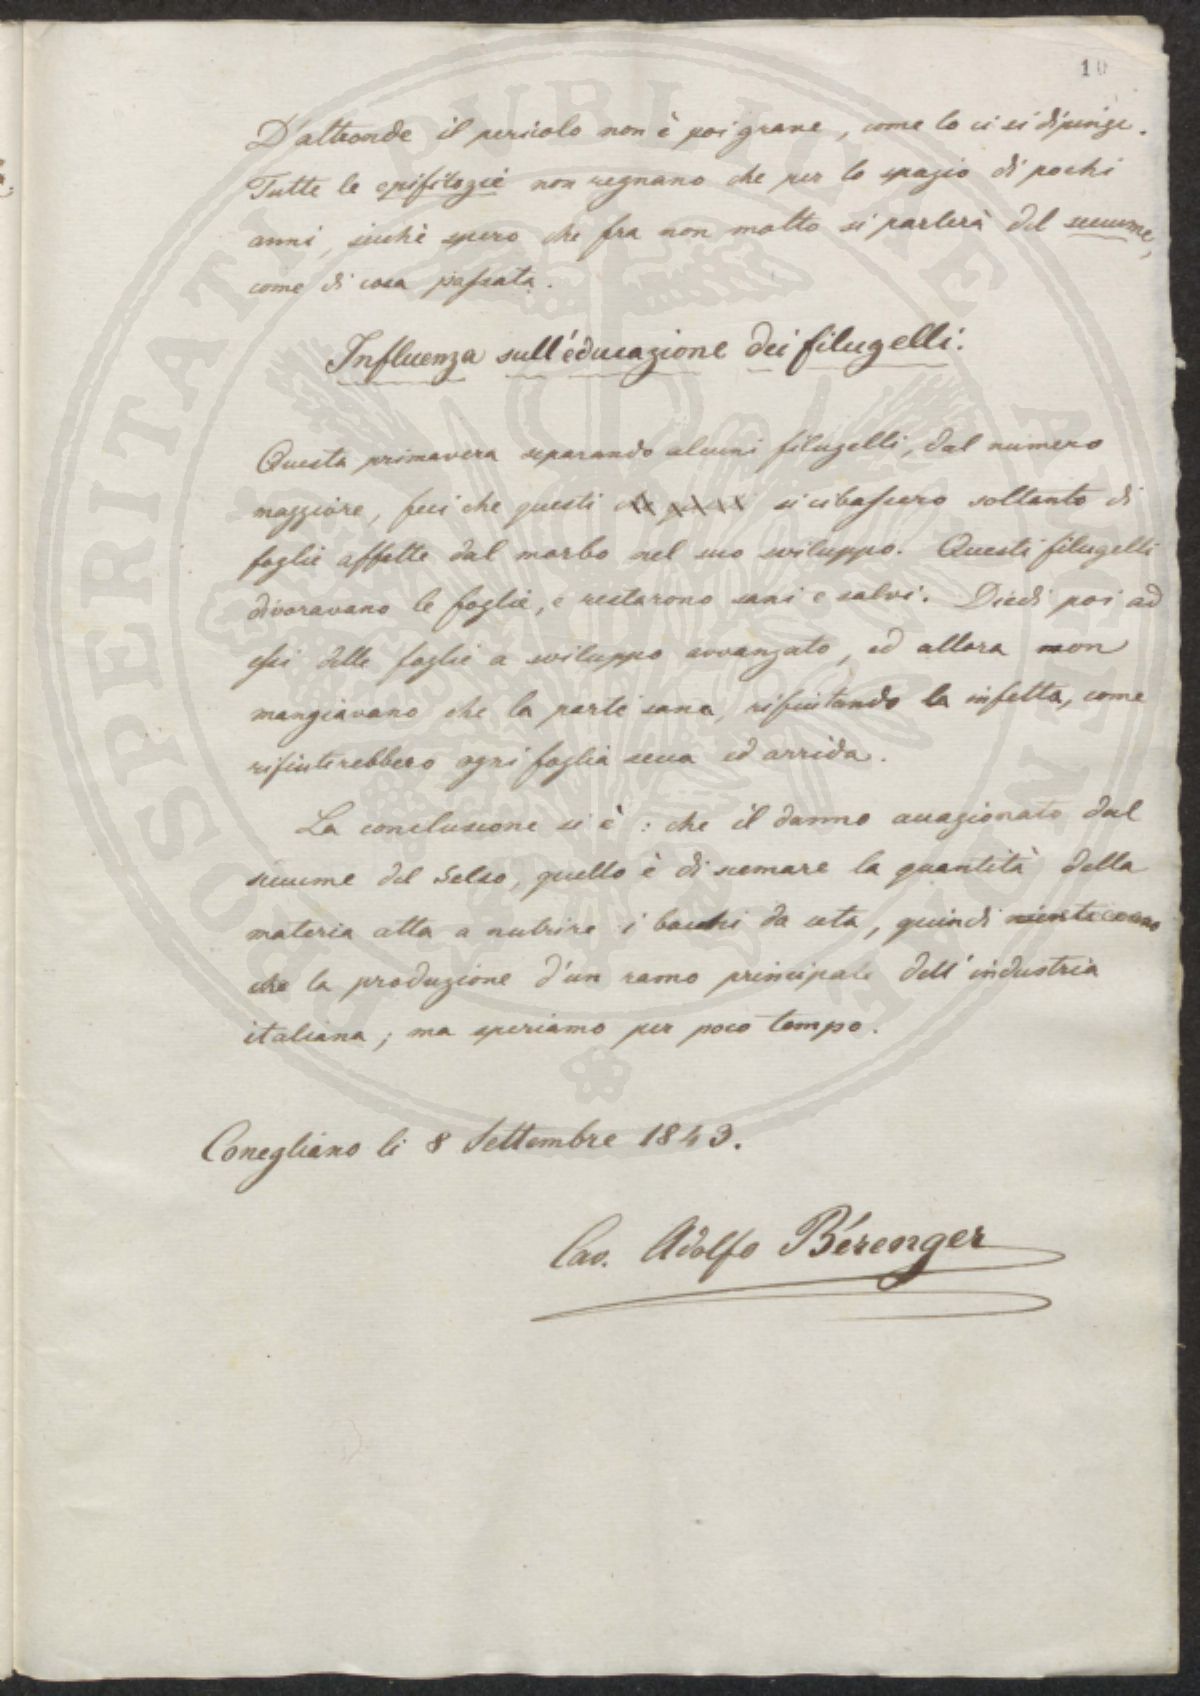 10
D'altronde il pericolo non è poi grave, come lo ci si dipinge.
Tutte le epifitozie non regnano che per lo spazio di pochi
anni, sicchè spero che fra non molto si parlerà del seccume,
come di cosa passata.
Influenza sull'educazione dei filugelli.
Questa primavera separando alcuni filugelli, dal numero
maggiore, feci che questi si cibassero soltanto di
foglie affette dal morbo nel suo sviluppo. Questi filugelli
divoravano le foglie, e restarono sani e salvi. Diedi poi ad
essi delle foglie a sviluppo avvanzato, ed allora non
mangiavano che la parte sana, rifiutando la infetta, come
rifiuterebbero ogni foglia secca ed arrida.
La conclusione si è: che il danno accagionato dal
seccume del Gelso, quello è di scemare la quantità della
materia atta a nutrire i bacchi da seta, quindi
che la produzione d'un ramo principale dell'industria
italiana; ma speriamo per poco tempo.
Conegliano li 8 Settembre 1843.
Cav. Adolfo Bérenger
PROSPERITATI PUBLICAE AUGENDAE